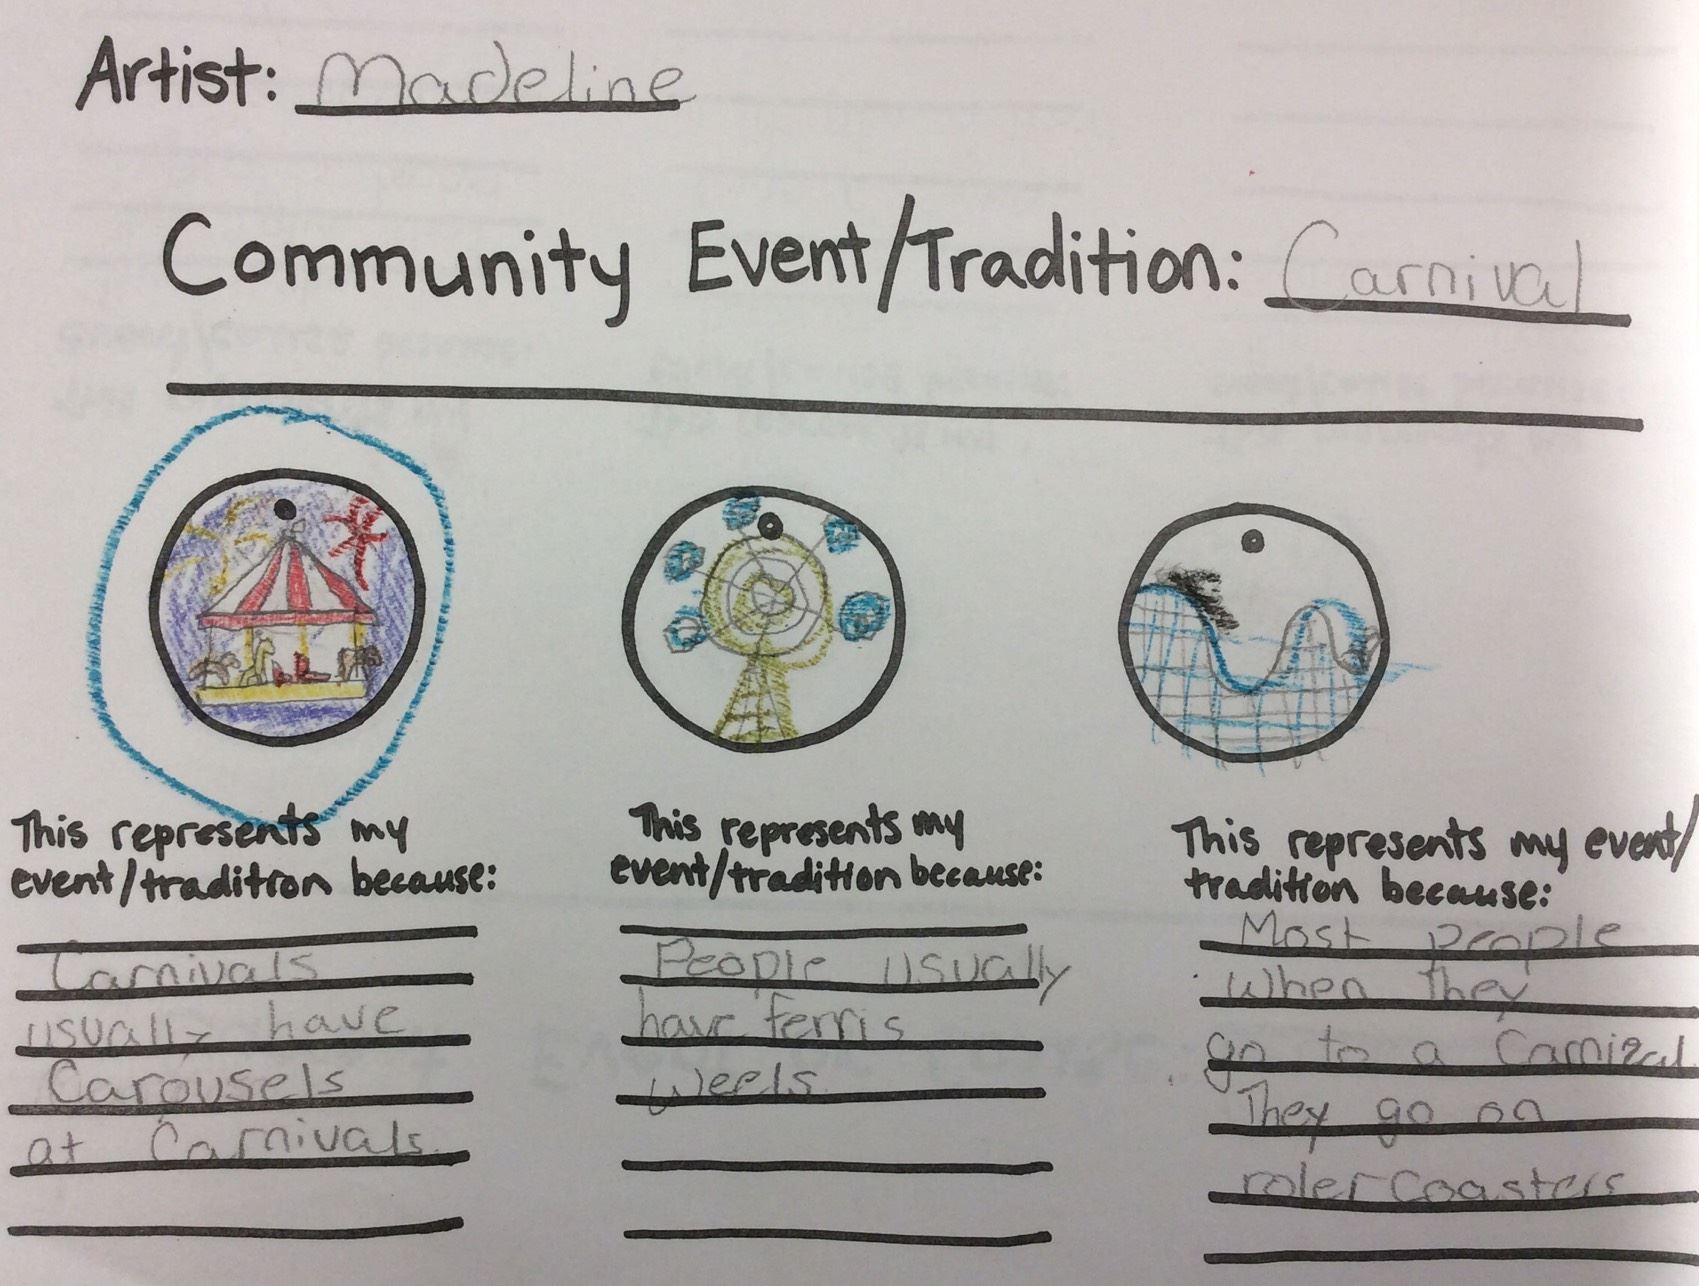 Artist: Madeline
Community Event/Tradition: Carnival
This represents my
event/tradition because:
Carnivals
usually have
Carousels
at Carnivals.
This represents my
event/tradition because:
People usually
have ferris
weels.
This represents my event/
tradition because:
Most people
when they
go to a Carnival
They go on
roler coasters